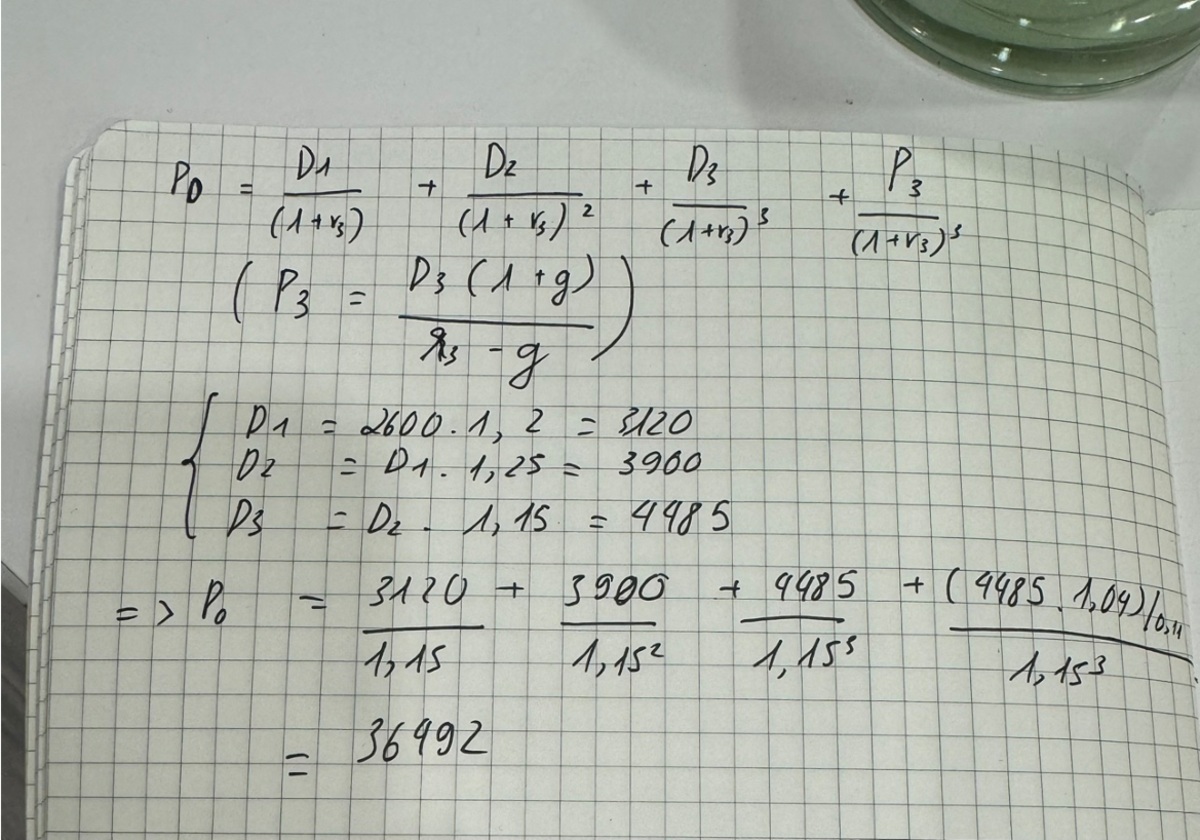 P0 = D1/(1+r₃) + D2/(1+r₃)² + D3/(1+r₃)³ + P3/(1+r₃)³
( P3 = D3 (1+g)/(r₃ - g) )
D1 = 2600 . 1,2 = 3120
D2 = D1 . 1,25 = 3900
D3 = D2 . 1,15 = 4485
=> P0 = 3120/1,15 + 3900/1,15² + 4485/1,15³ + (4485 . 1,04)/0,11/1,15³
= 36492